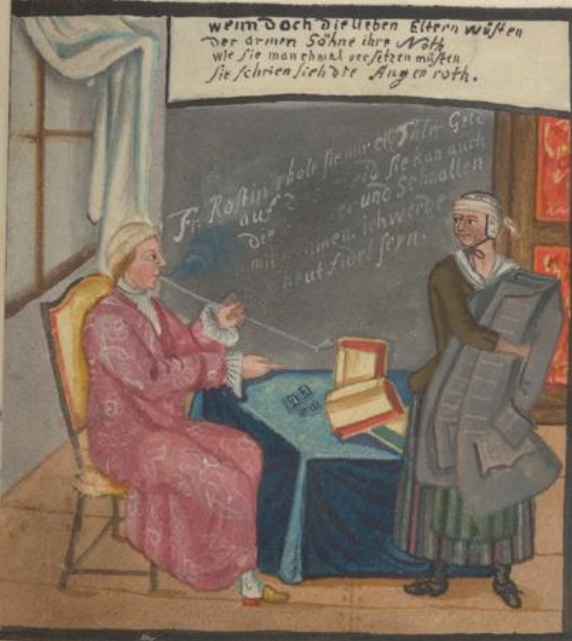 wenn doch die lieben Eltern wüsten
Der armen Söhne ihre Noth
wie sie manchmal versetzen müsten
sie schrien sich die Augen roth.
Fr. Rostin, hole sie mir elf Thlr Geld
auf sie kan auch
die und Schnallen
mit nehmen. ich werde
heut fidel seyn.